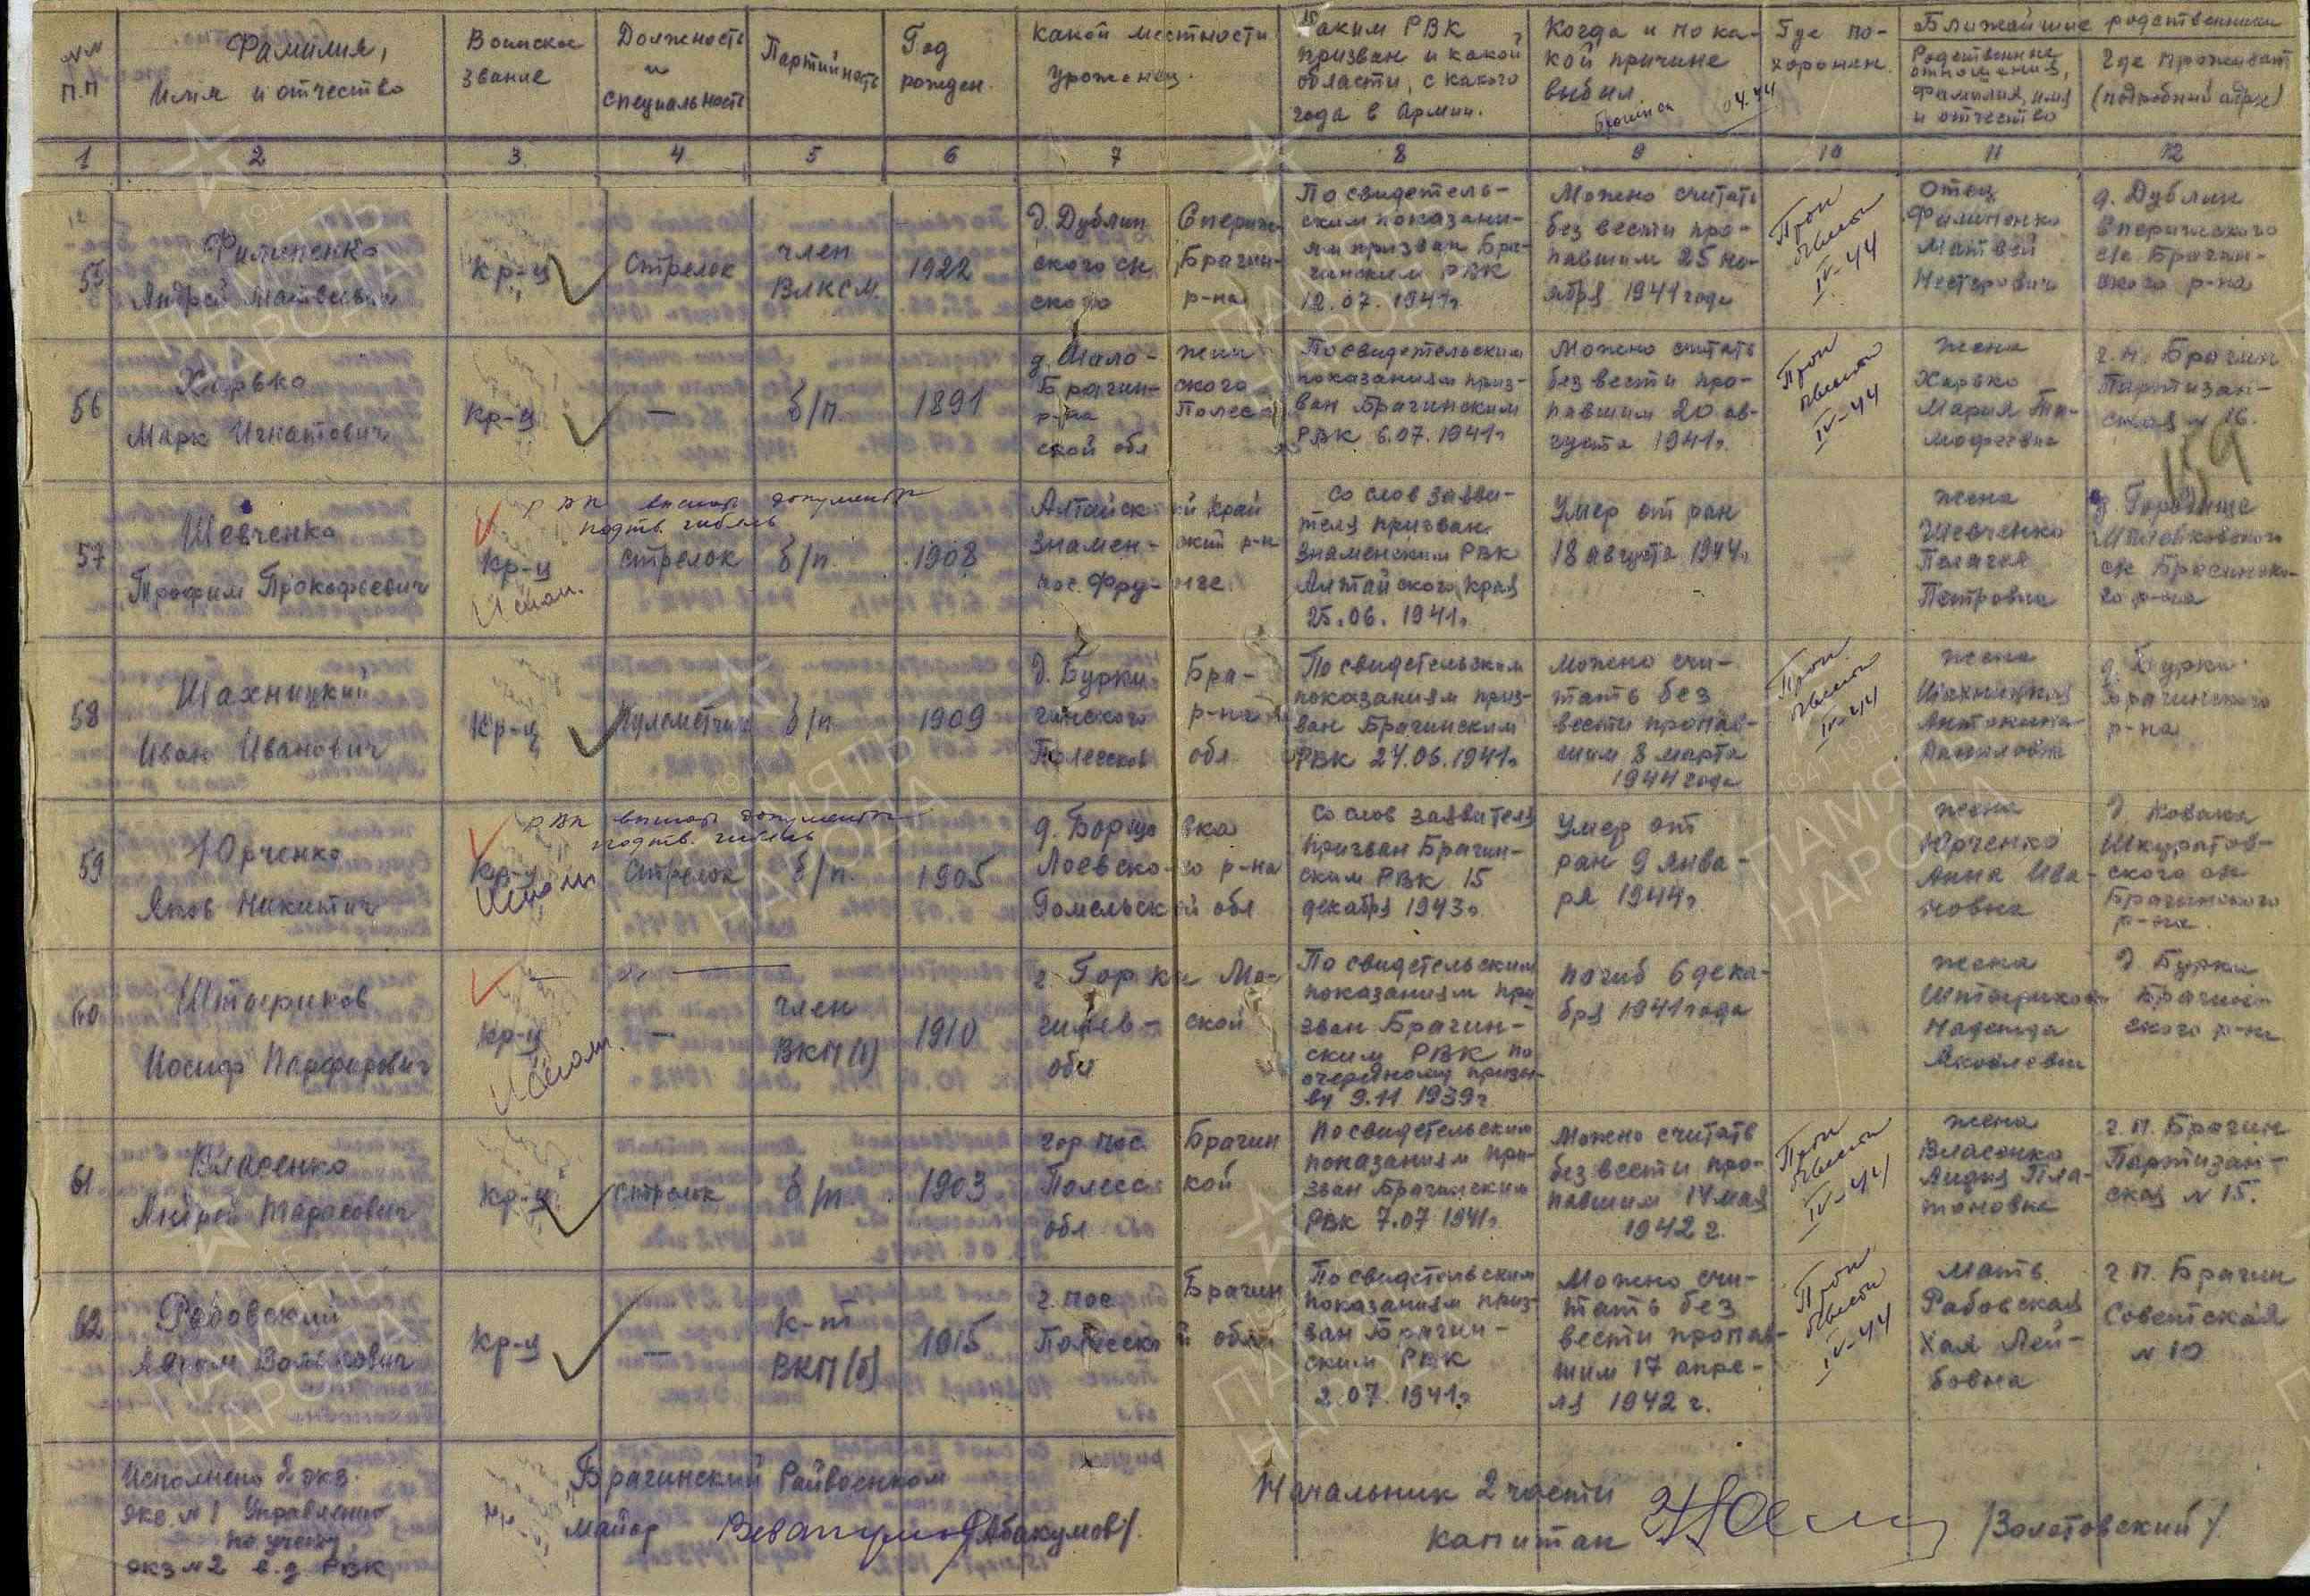 №№ п.п
Фамилия,
Имя и отчество
Воинское
звание
Должность
и
специальность
Партийность
Год
рожден.
какой местности
уроженец.
Каким РВК
призван и какой
области, с какого
года в Армии.
Когда и по ка-
кой причине
выбыл
04.44
Где по-
хоронен.
Ближайшие родственники
Родственные
отношения,
Фамилия, имя
и отчество
Где проживает
(подробный адрес)
1 2 3 4 5 6 7 8 9 10 11 12
55
Филипенко
Андрей Матвеевич
Кр-ц
Стрелок
член
ВЛКСМ
1922
д. Дублин Сперич-
ского с/с Брагин-
ского р-на
По свидетель-
ским показани-
ям призван Бра-
гинским РВК
12.07.1941г
Можно считать
без вести про-
павшим 25 но-
ября 1941 года
IV-44
отец
Филипенко
Матвей
Нестерович
д. Дублин
Сперичского
с/с Брагин-
ского р-на
56
Харько
Марк Игнатович
Кр-ц
—
б/п.
1891
д. Мало-жин
Брагин-ского
р-на Полес
ской обл
По свидетельским
показаниям приз-
ван Брагинским
РВК 6.07.1941г
Можно считать
без вести про-
павшим 20 ав-
густа 1941г.
IV-44
жена
Харько
Мария Ти-
мофеевна
г.п. Брагин
Партизан-
ская № 16.
159
57
Шевченко
Трофим Прокофьевич
РВК выслат документы
подтв. гибель
Кр-ц
стрелок
б/п.
1908
Алтайский Край
Знамен-ский р-н
пос. Фру-нзе.
Со слов заяви-
теля призван
Знаменским РВК
Алтайского края
25.06.1941г
Умер от ран
18 августа 1944г
жена
Шевченко
Пелагея
Петровна
д. Городище
с/с Брагинско-
го р-на
58
Шахницкий
Иван Иванович
Кр-ц
Пулеметчик
б/п
1909
д. Бурки Бра-
гинского р-на
Полесской обл
По свидетельским
показаниям приз-
ван Брагинским
РВК 24.06.1941г
Можно счи-
тать без
вести пропав-
шим 8 марта
1944 года
IV-44
жена
Шахницкая
Антонина
Даниловна
д. Бурки
Брагинского
р-на
59
Юрченко
Яков Никитич
РВК выслат документы
подтв. гибель
Кр-ц
Стрелок
б/п.
1905
д. Борщовка
Лоевского р-на
Гомельской обл
Со слов заявителя
призван Брагин-
ским РВК 15
декабря 1943г.
Умер от
ран 9 янва-
ря 1944г
жена
Юрченко
Анна Ива-
новна
д. Ковака
Шкуратов-
ского с/с
Брагинского
р-на.
60
Штыриков
Иосиф Парфирович
— „ —
Кр-ц
—
член
ВКП(б)
1910
г. Горки Мо-
гилев-ской
обл
По свидетельским
показаниям при
зван Брагин-
ским РВК по
очередному призы-
ву 9.11.1939г
погиб 6 дека-
бря 1941 года
жена
Штырикова
Надежда
Яковлевна
д. Бурки
Брагин-
ского р-на
61
Власенко
Андрей Тарасович
Кр-ц
стрелок
б/п.
1903
гор. пос. Брагин
Полесской
обл
По свидетельским
показаниям при-
зван Брагинским
РВК 7.07.1941г
Можно считать
без вести про-
павшим 14 мая
1942 г.
IV-44
жена
Власенко
Лидия Пла-
тоновна
г.п. Брагин
Партизан-
ская № 15.
62
Рабовский
Абрам Вольфович
Кр-ц
—
к-т
ВКП(б)
1915
г. пос. Брагин
Полесской обл
По свидетельским
показаниям приз-
ван Брагин-
ским РВК
2.07.1941г
Можно счи-
тать без
вести пропав-
шим 17 апре-
ля 1942 г.
IV-44
мать
Рабовская
Хая Лей-
бовна
г.п. Брагин
Советская
№ 10
Исполнено 2 экз.
экз. №1 Управлению
по учету
экз №2 в д. РВК
Брагинский Райвоенком
Майор /Абакумов/.
Начальник 2 части
капитан /Золотовский/
ПАМЯТЬ
НАРОДА
1941-1945